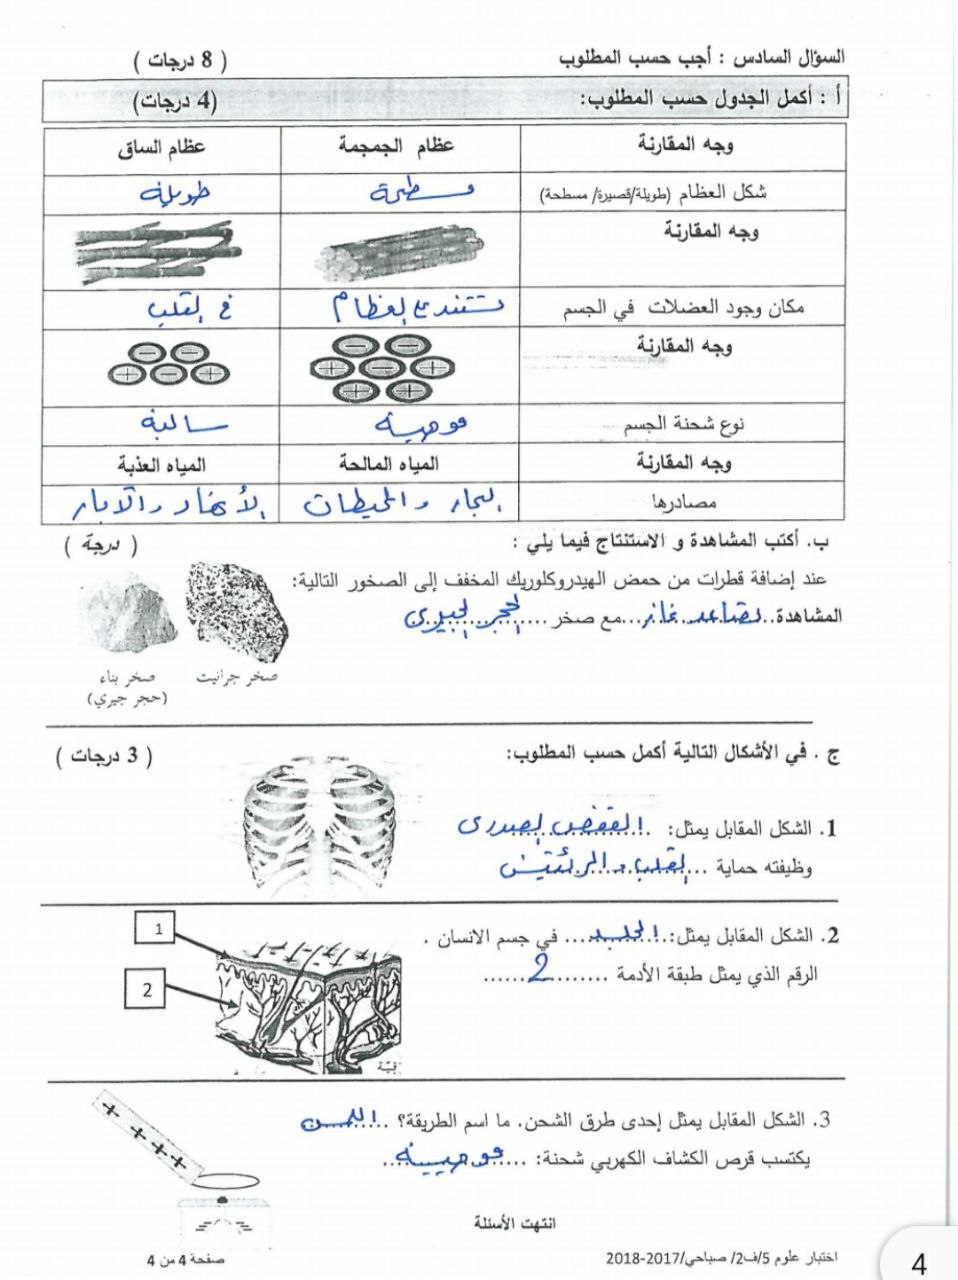 السؤال السادس : أجب حسب المطلوب ( 8 درجات )
أ : أكمل الجدول حسب المطلوب: (4 درجات)
وجه المقارنة عظام الجمجمة عظام الساق
شكل العظام (طويلة/قصيرة/ مسطحة) مسطحة طويلة
وجه المقارنة
مكان وجود العضلات في الجسم تستند على العظام في القلب
وجه المقارنة
نوع شحنة الجسم موجبة سالبة
وجه المقارنة المياه المالحة المياه العذبة
مصادرها البحار والمحيطات الأنهار والآبار
ب. أكتب المشاهدة و الاستنتاج فيما يلي : ( درجة )
عند إضافة قطرات من حمض الهيدروكلوريك المخفف إلى الصخور التالية:
المشاهدة..تصاعد غاز...مع صخر ...الحجر الجيري
صخر جرانيت صخر بناء
(حجر جيري)
ج . في الأشكال التالية أكمل حسب المطلوب: ( 3 درجات )
1. الشكل المقابل يمثل: القفص الصدري
وظيفته حماية ...القلب والرئتين
2. الشكل المقابل يمثل:.الجلد.... في جسم الانسان .
الرقم الذي يمثل طبقة الأدمة ......2......
1
2
3. الشكل المقابل يمثل إحدى طرق الشحن. ما اسم الطريقة؟ ....اللمس
يكتسب قرص الكشاف الكهربي شحنة: ....موجبة..
+ + + +
انتهت الأسئلة
اختبار علوم 5/ف2/ صباحي/2017-2018 صفحة 4 من 4
4